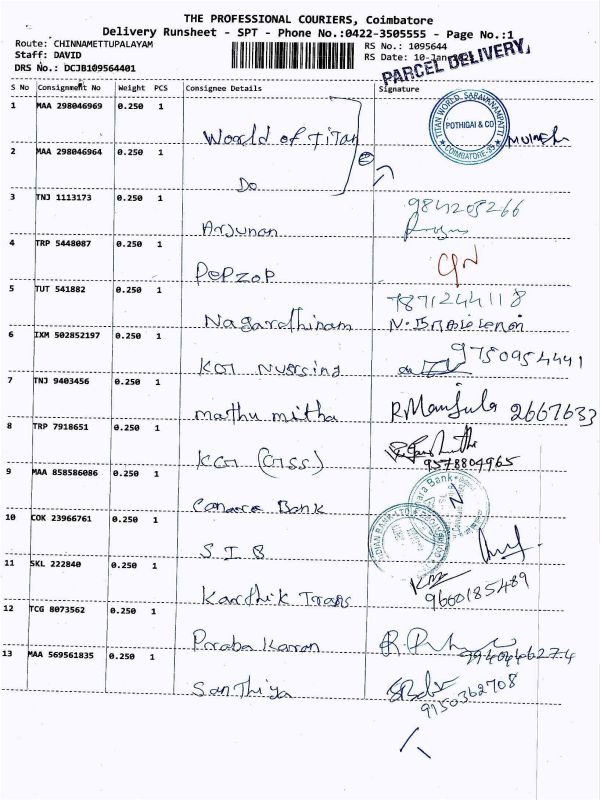 THE PROFESSIONAL COURIERS, Coimbatore
Delivery Runsheet - SPT - Phone No.:0422-3505555 - Page No.:1
Route: CHINNAMETTUPALAYAM RS No.: 1095644
Staff: DAVID RS Date: 10-Jan
DRS No.: DCJB109564401
PARCEL DELIVERY
S No Consignment No Weight PCS Consignee Details Signature
1 MAA 298046969 0.250 1
World of Titan
TITAN WORLD, SARAVANAMPATTI
POTHIGAI & CO
COIMBATORE-35
2 MAA 298046964 0.250 1
Do
3 TNJ 1113173 0.250 1
Arjunan
4 TRP 5448087 0.250 1
PEPZOP
5 TUT 541882 0.250 1 7871244118
Nagarathinam
6 IXM 502852197 0.250 1 9750954441
KG Nursing
7 TNJ 9403456 0.250 1
mathu mitha R Manjula 2667633
8 TRP 7918651 0.250 1
KG (GSS) 9578804965
9 MAA 858586086 0.250 1
Canara Bank
10 COK 23966761 0.250 1
SIB
11 SKL 222840 0.250 1
Karthik Trans 9660185489
12 TCG 8073562 0.250 1
Praba Karan
13 MAA 569561835 0.250 1
Santhiya 9950362708